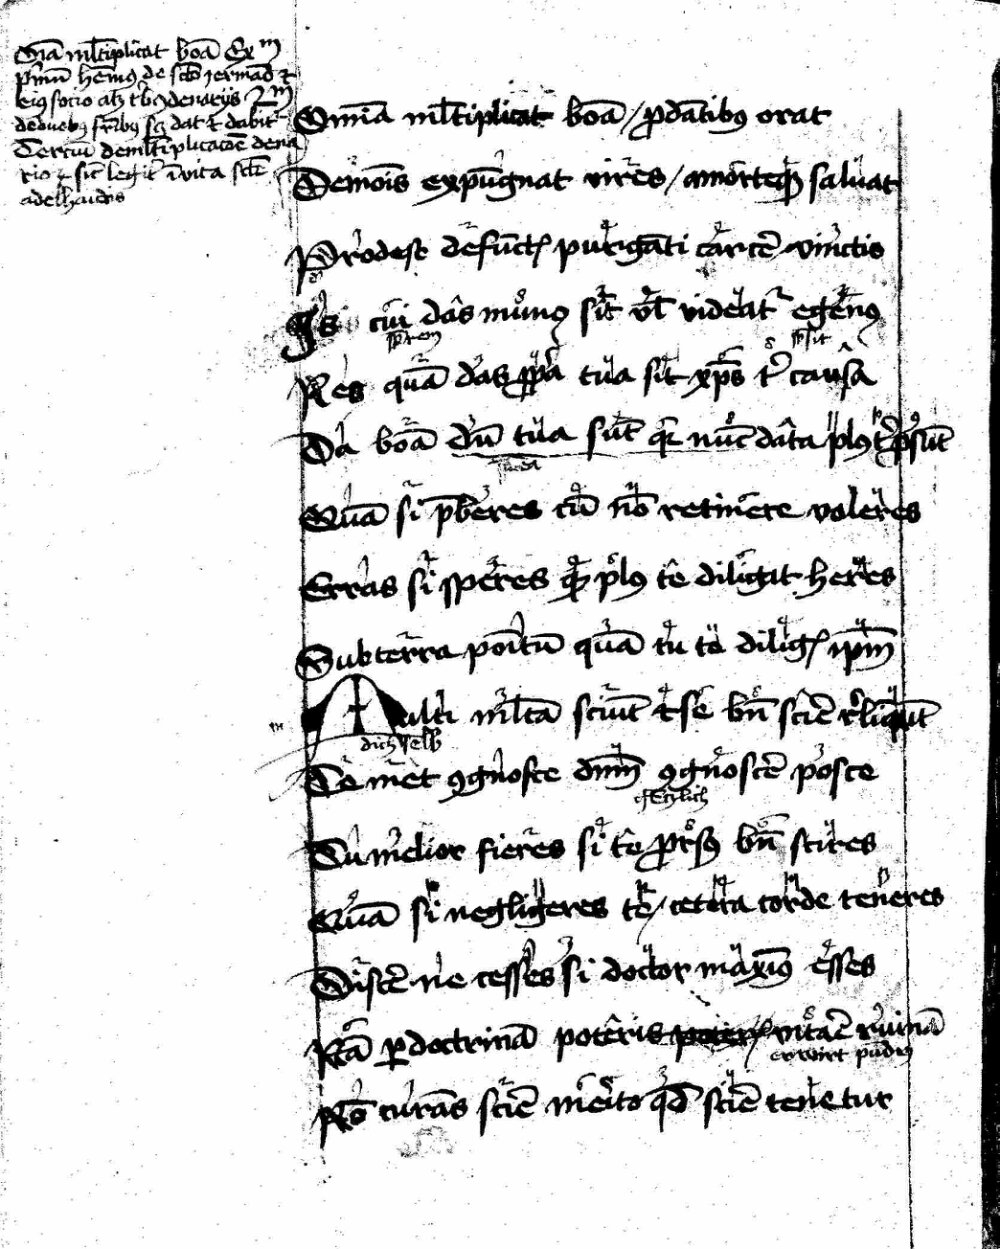 Oi͞a ml̄tiplicat bo͞a Exm
pͥmū hēmꝰ de sc̄o germāo ⁊
eiꝰ socio
deduobꝰ fr̄ibꝰ sꝫ dat ⁊ dabit͛
Terciū de ml̄tiplicacōe dena
rio ⁊ sic legit͛ ī vita sc̄e
adelhaidis
Omīa ml̄tiplicat bo͞a / ꝓdātibꝰ orat
Demōis expūgnat vires / a mōrteqꝫ saluat
Prodest defūctꝭ purigāti carcē vinctis
Is cui das munꝰ sit vl̄ videat͛ egenꝰ
Res quā das ꝓp͛a tua sit xp̄s t͛ causa
Da bo͞a dū tua sūt qꝛ nūc data plꝰ t͛ ꝓsūt
Quā si p̄beres cū nō retinere voleres
Erras si speres qꝫ plꝰ te diligat heres
Sub terra poītū quā tu te diligꝭ ip̄m
Multi ml̄ta sciūt ⁊ se bn̄ scīe r̄liquūt
dich selb
Te met ꝯgnosce dn̄m ꝯgnoscē posce
genczlich
Tu melior fieres si te ꝓrsꝰ bn̄ scires
Quā si negligeres te / cetera corde teneres
Discē ne cesses si doctor maxīꝰ esses
Nā ꝑ doctrinā poteris vitaē ruinā
Nō curas scīe merito qd̄ scīe tenetur